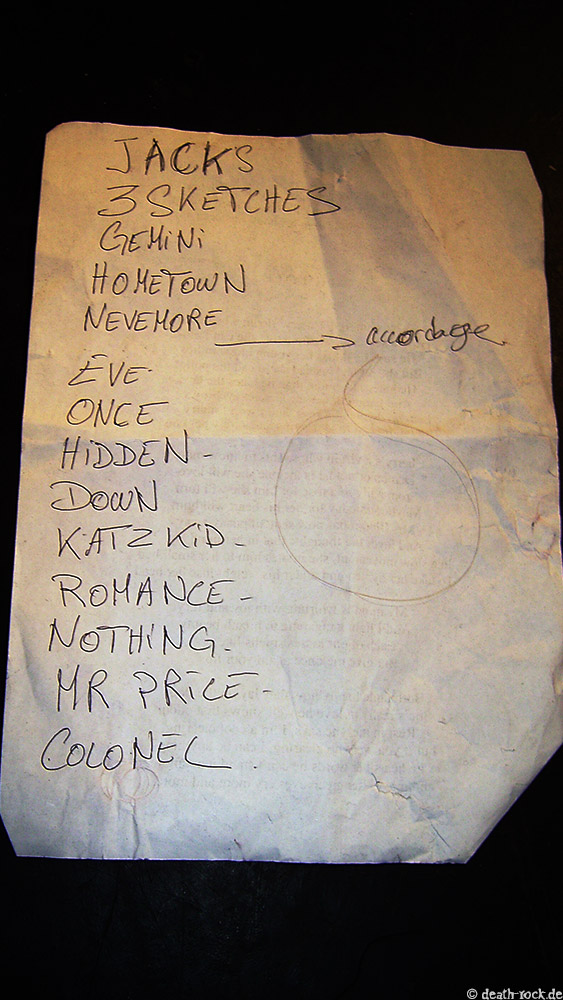 JACKS
3 SKETCHES
GEMiNi
HOMETOWN
NEVEMORE
→ accordage
EVE
ONCE
HiDDEN -
DOWN
KATZ KiD -
ROMANCE -
NOTHiNG -
MR PRiCE -
COLONEL
© death-rock.de